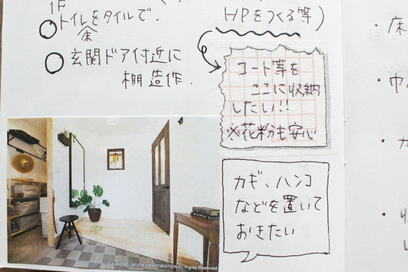 1F
トイレをタイルで.
床
玄関ドア付近に
棚造作.
HPをつくる等)
コート等を
ここに収納
したい!!
※花粉も安心
カギ、ハンコ
などを置いて
おきたい
床